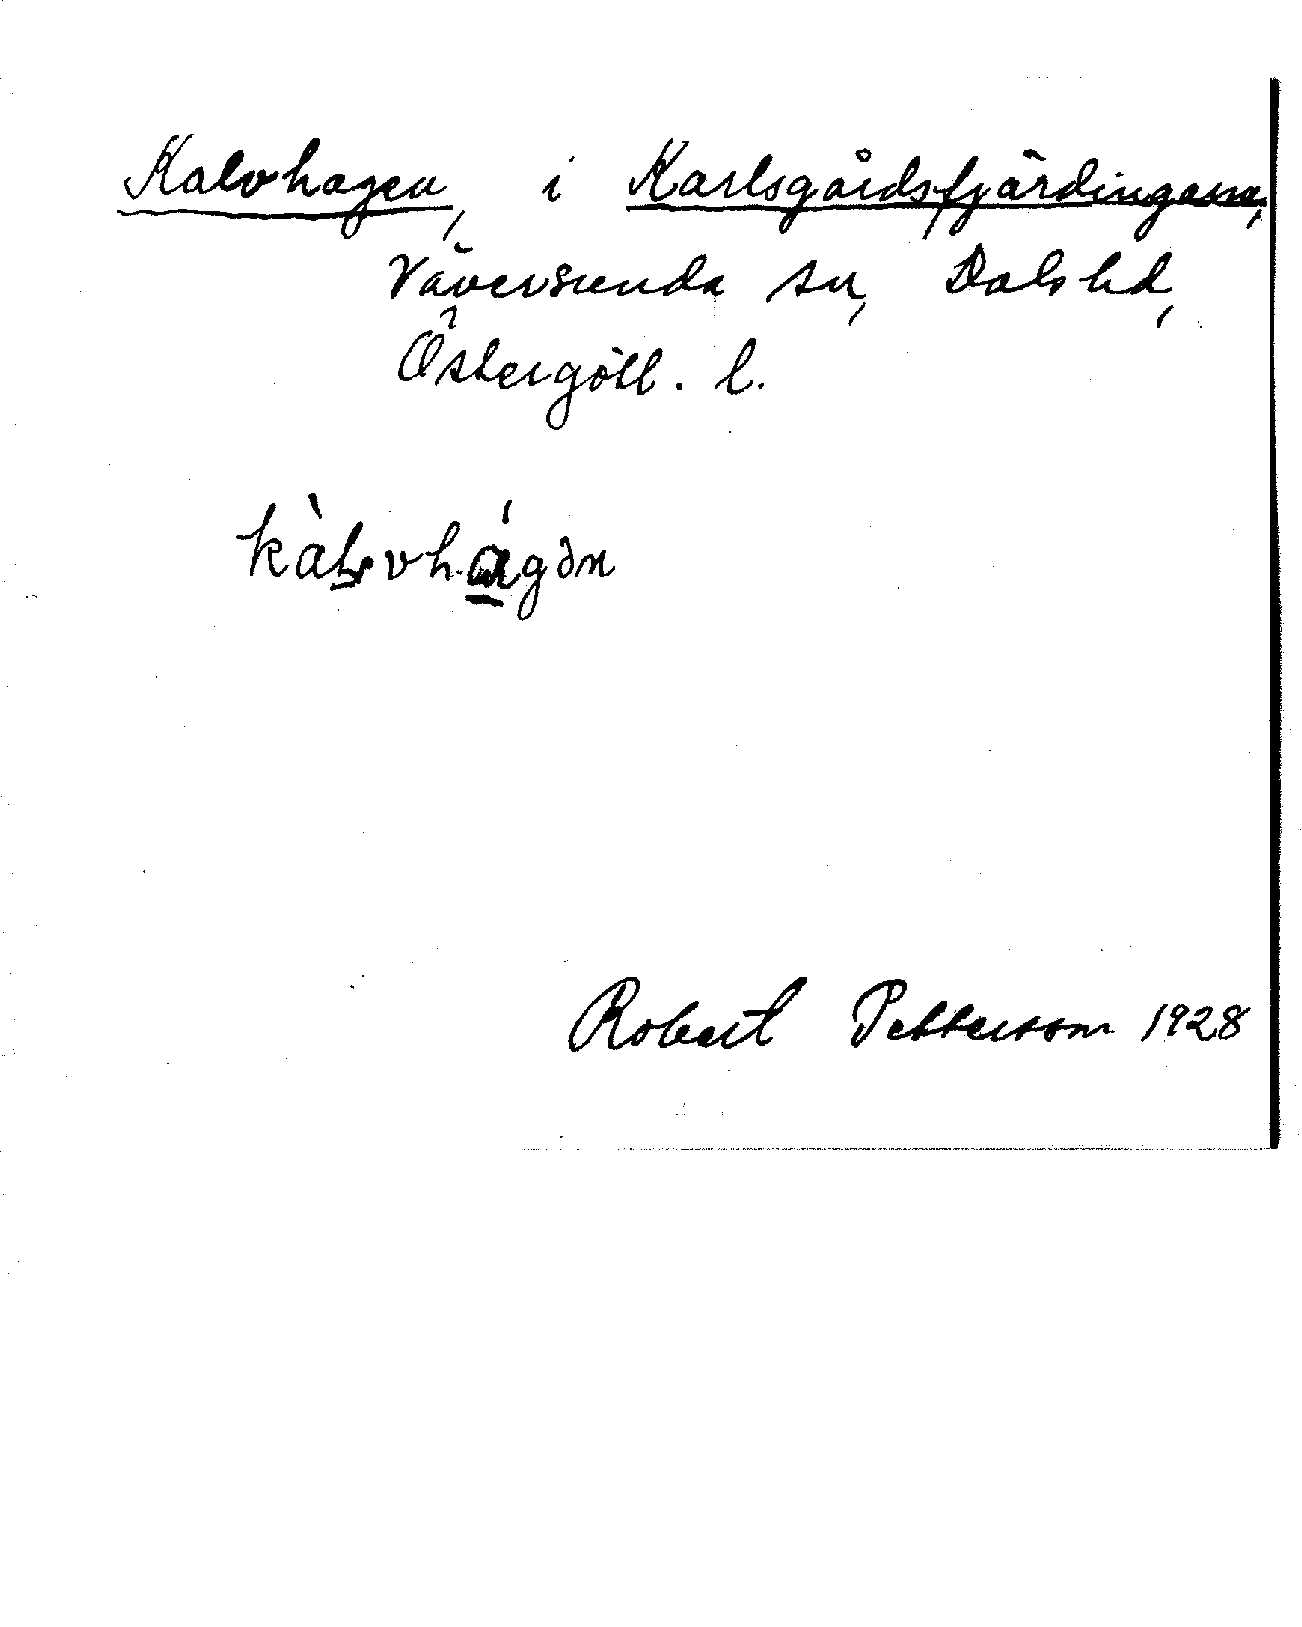 Kalvhagen, i Karlsgårdsfjärdingarna,
Väversunda sn, Dals hd,
Östergötl. l.
kàlvhágən
Robert Pettersson 1928